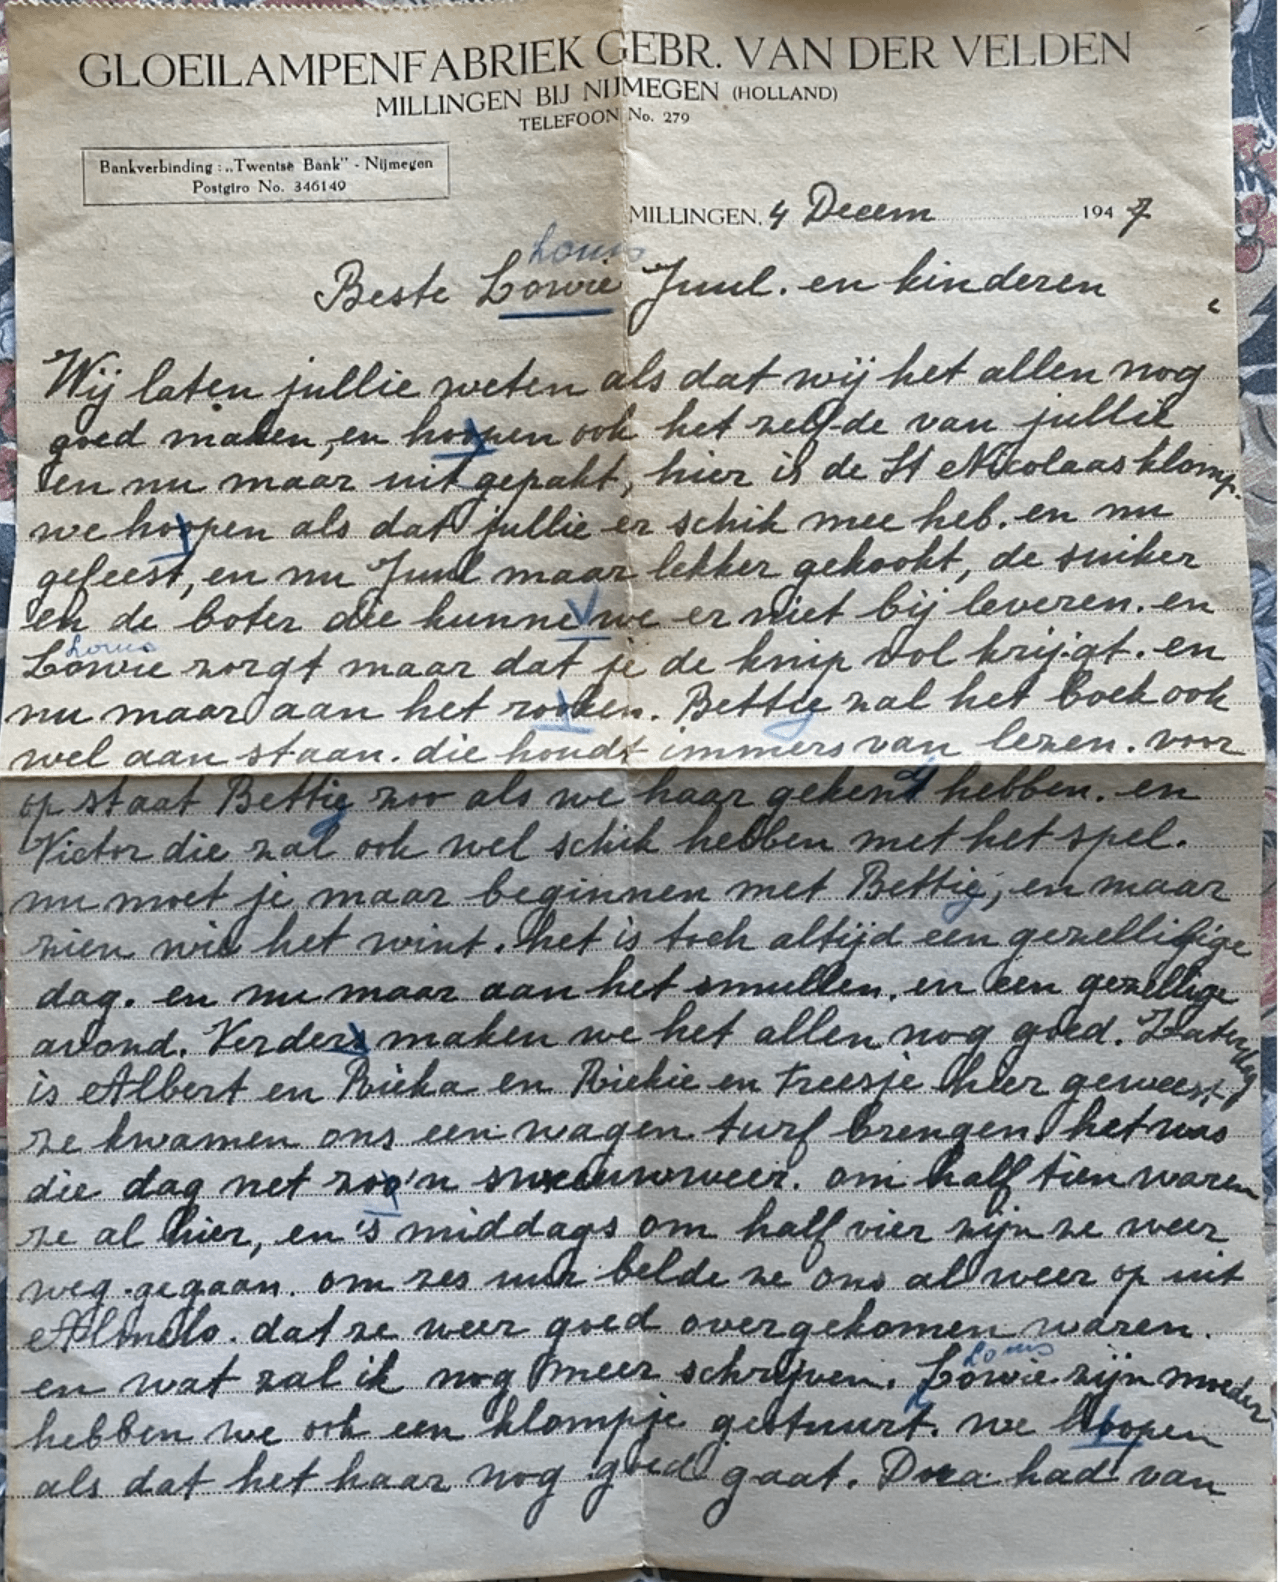 GLOEILAMPENFABRIEK GEBR. VAN DER VELDEN
MILLINGEN BIJ NIJMEGEN (HOLLAND)
TELEFOON No. 279
Bankverbinding : „Twentse Bank" - Nijmegen
Postgiro No. 346149
MILLINGEN, 4 Decem 1947
Louis
Beste Lowie Juul. en kinderen
Wij laten jullie weten als dat wij het allen nog
goed maken, en hoopen ook het zelfde van jullie
en nu maar uit gepakt, hier is de St Nicolaas klomp.
we hoopen als dat jullie er schik mee heb. en nu
gefeest, en nu Juul maar lekker gekookt, de suiker
en de boter die kunne we er niet bij leveren. en
Louis
Lowie zorgt maar dat je de knip vol krijgt. en
nu maar aan het rooken. Bettie zal het boek ook
wel aan staan. die houdt immers van lezen. voor
op staat Bettie zoo als we haar gekent hebben. en
Victor die zal ook wel schik hebben met het spel.
nu moet je maar beginnen met Bettie, en maar
zien wie het wint. het is toch altijd een gezelligige
dag. en nu maar aan het smullen. en een gezellige
avond. Verders maken we het allen nog goed. Zaterdag
is Albert en Rieka en Riekie en Treesje hier geweest
ze kwamen ons een wagen turf brengen. het was
die dag net zoo'n sneeuwweer. om half tien waren
ze al hier, en 's middags om half vier zijn ze weer
weg gegaan. om zes uur belde ze ons al weer op uit
Almelo. dat ze weer goed overgekomen waren.
Louis
en wat zal ik nog meer schrijven. Lowie zijn moeder
hebben we ook een klompje gestuurt. we hoopen
als dat het haar nog goed gaat. Dora had van